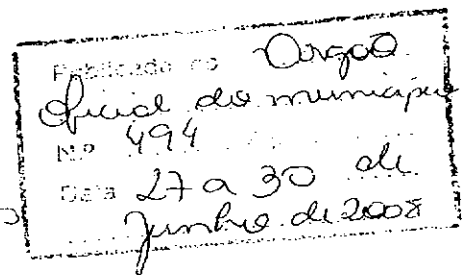 Publicado no Orgão
Oficial do município
N.º 494
Data 27 a 30 de
Junho de 2008